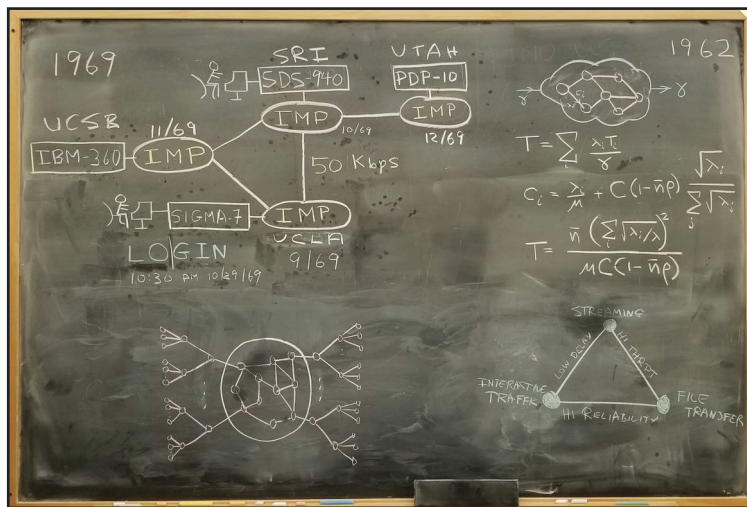 1969
SRI
UTAH
SDS-940
PDP-10
IMP
10/69
IMP
12/69
UCSB
11/69
IBM-360
IMP
50 Kbps
SIGMA-7
IMP
UCLA
9/69
LOGIN
10:30 PM 10/29/69
1962
γ
γ
T = Σᵢ λᵢTᵢ/γ
Cᵢ = λᵢ/μ + C(1-n̄ρ) √λᵢ/Σⱼ√λⱼ
T = n̄(Σᵢ√λᵢ/λ)²/μC(1-n̄ρ)
STREAMING
LOW DELAY
HI THRPT
INTERACTIVE
TRAFFIC
HI RELIABILITY
FILE
TRANSFER